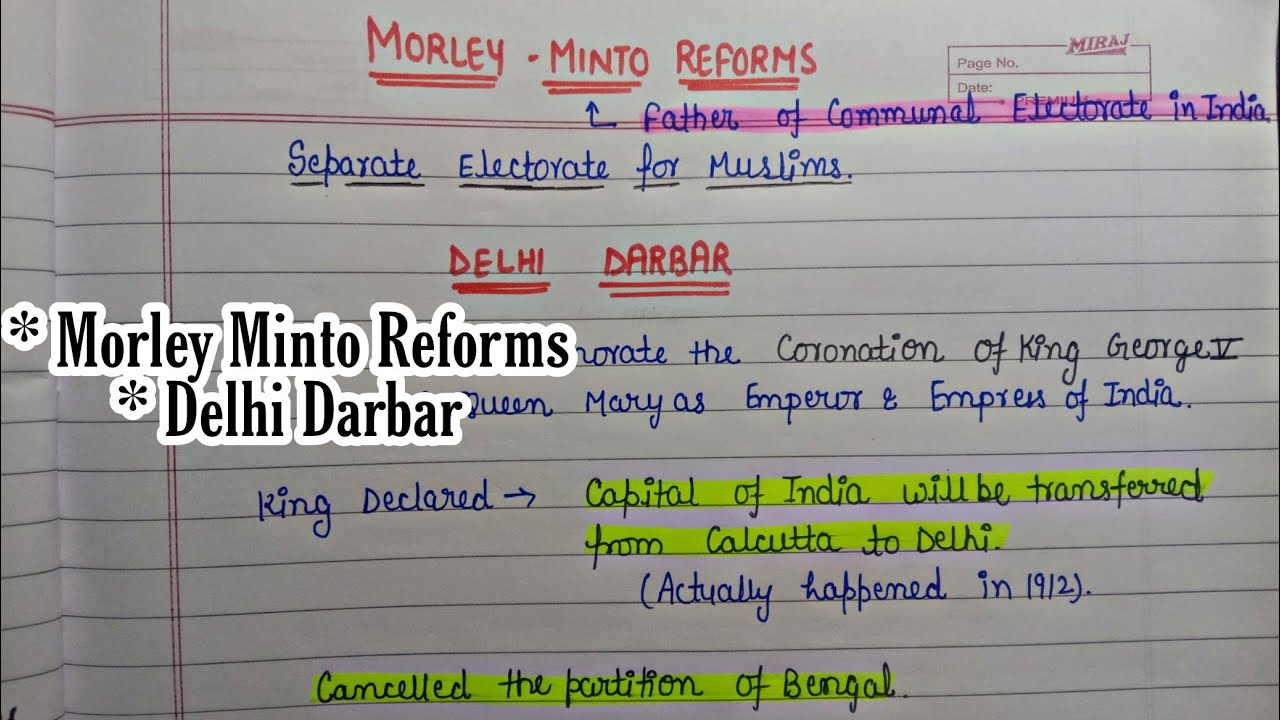 MORLEY - MINTO REFORMS
MIRAJ
Page No.
Date:
PREMIUM
↳ Father of Communal Electorate in India
Separate Electorate for Muslims.
DELHI DARBAR
* Morley Minto Reforms
the Coronation of King George V
* Delhi Darbar
Queen Mary as Emperor & Empress of India.
King Declared → Capital of India will be transferred
from Calcutta to Delhi.
(Actually happened in 1912).
Cancelled the partition of Bengal.